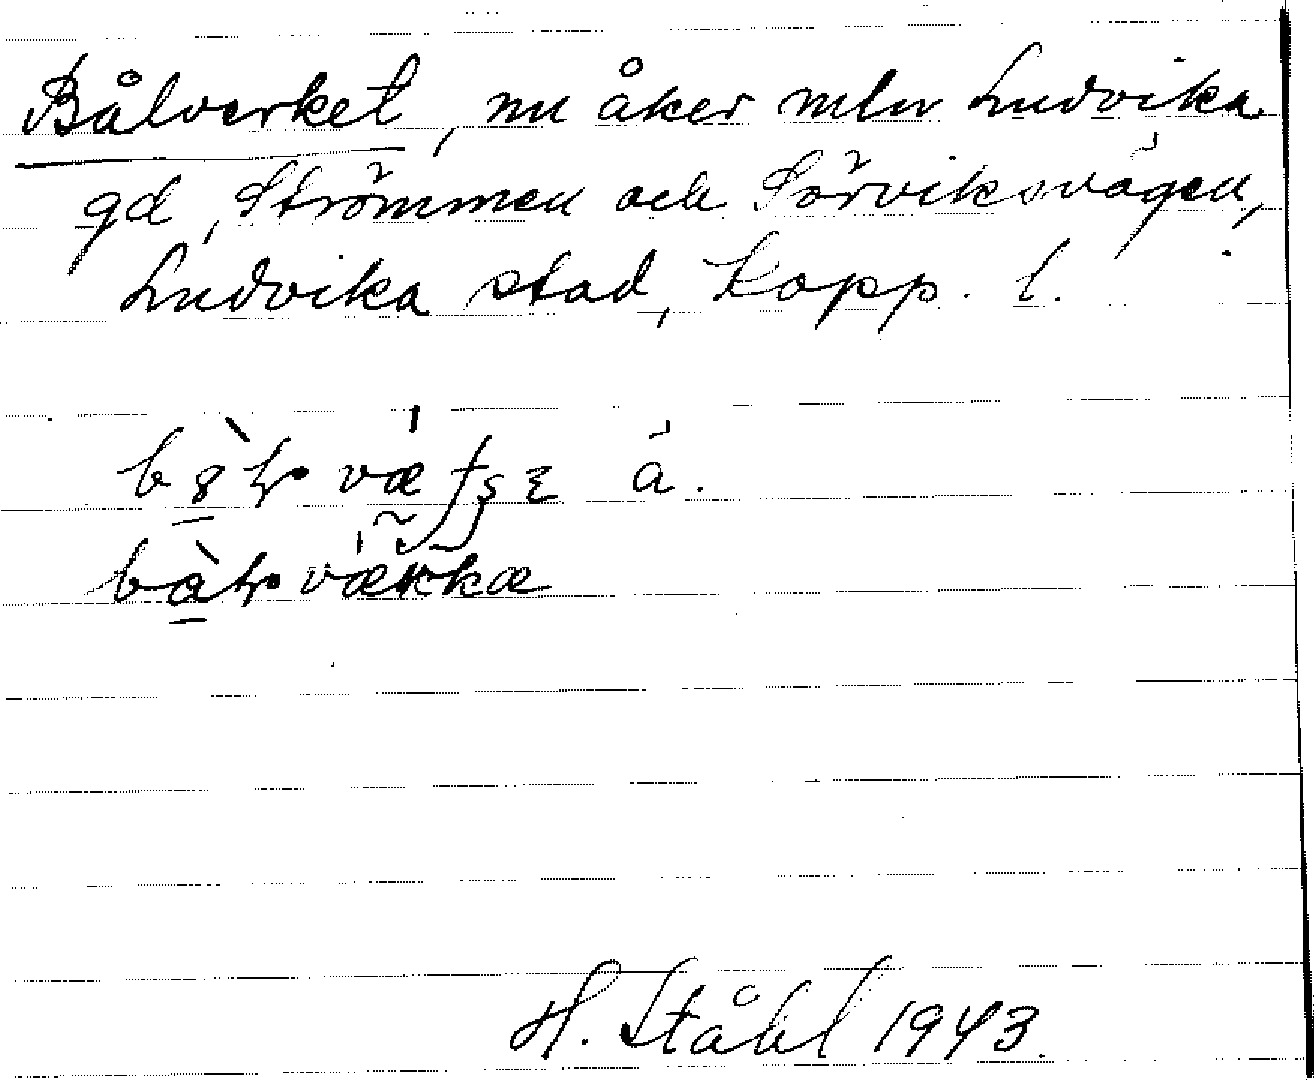 Bålverket, nu åker mln Ludvika
gd, Strömmen och Sörviksvägen,
Ludvika stad, Kopp. l.
ä.
H. Ståhl 1943.